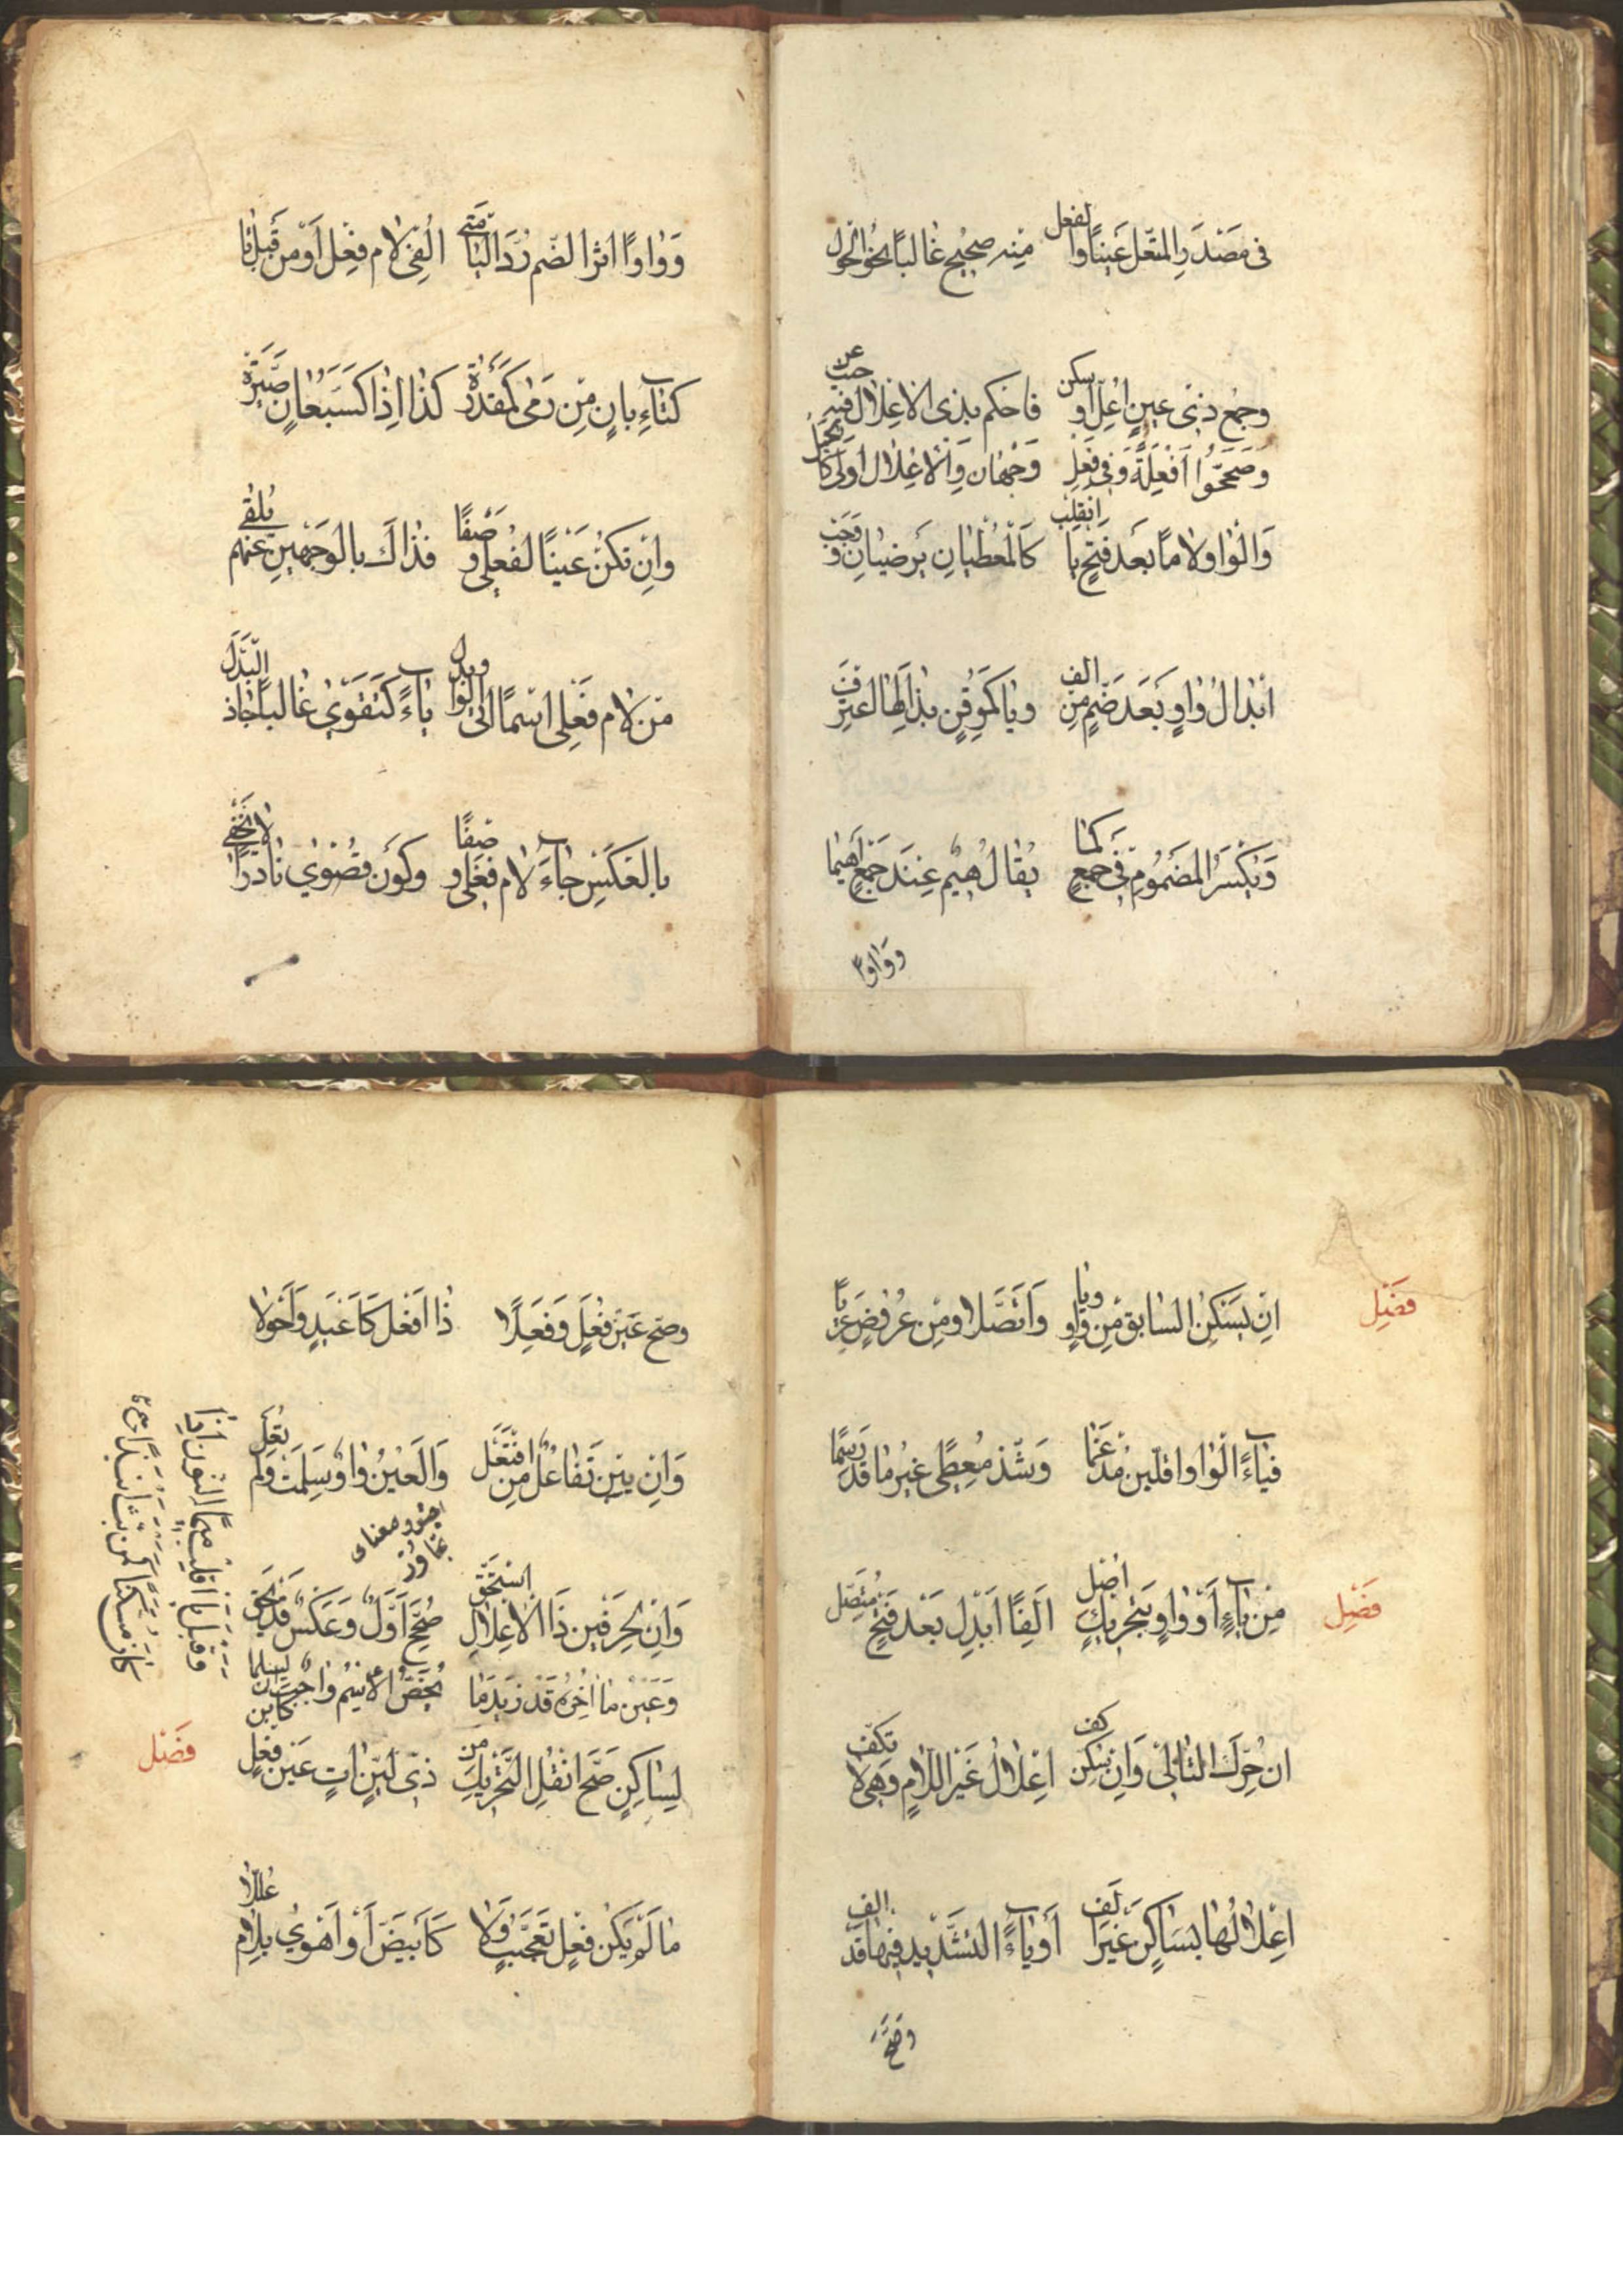 في مصدر المتعل عينا والفعل منه صحيح غالبا نحو الحول
وجمع ذي عين اعل او سكن فاحكم بذى الاعلال فيه حيث عن
وصححوا افعلة وفي فعل وجهان والاعلال اولى كالحيل
والواو لاما بعد فتح يا انقلب كالمعطيان يرضيان ووجب
ابدال واو بعد ضم من الف ويا كموقن بذا لها اعترف
ويكسر المضموم في جمع كما يقال هيم عند جمع اهيما
وواوا
وواوا اثر الضم رد اليا متى الفي لام فعل او من قبل تا
كتاء بان من رمى كمقدرة كذا اذا كسبعان صيره
وان تكن عينا لفعلى وصفا فذاك بالوجهين عنهم يلفى
من لام فعلى اسما اتى الواو بدل ياء كتقوى غالبا جا ذا البدل
بالعكس جاء لام فعلى وصفا وكون قصوى نادرا لا يخفى
فصل
ان يسكن السابق من واو ويا واتصلا ومن عروض عريا
فياء الواو اقلبن مدغما وشذ معطى غير ما قد رسما
فصل
من ياء او واو بتحريك اصل الفا ابدل بعد فتح متصل
ان حرك التالي وان سكن كف اعلال غير اللام وهي لا تكف
اعلالها بساكن غير الف او ياء التشديد فيها قد الف
وصح
وصح عين فعل وفعلا ذا افعل كاغيد واحولا
وان يبن تفاعل من افتعل والعين واو سلمت ولم تعل
وان لحرفين ذا الاعلال استحق صحح اول وعكس قد يحق
وعين ما اخره قد زيد ما يخص الاسم واجب ان يسلما
وقبل با اقلب ميما النون اذا
كان مسكنا كمن بت انبذا
فصل
لساكن صح انقل التحريك من ذي لين ات عين فعل كابن
ما لم يكن فعل تعجب ولا كابيض او اهوى بلام عللا